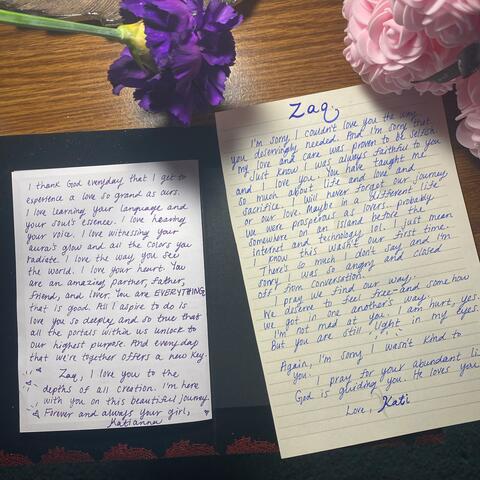 I thank God everyday that I get to
experience a love so grand as ours.
I love learning your language and
your soul's essence. I love hearing
your voice. I love witnessing your
aura's glow and all the colors you
radiate. I love the way you see
the world. I love your heart. You
are an amazing partner, father,
friend, and lover. You are EVERYTHING
that is good. All I aspire to do is
love you so deeply, and so true that
all the portals within us unlock to
our highest purpose. And everyday
that we're together offers a new key.
Zaq, I love you to the
depths of all creation. I'm here
with you on this beautiful journey.
Forever and always your girl,
Katianna
Zaq,
I'm sorry I couldn't love you the way
you deservingly needed. And I'm sorry that
my love and care was proven to be selfish.
Just know I was always faithful to you
and I love you. You have taught me
so much about life and love and
sacrifice. I will never forget our journey
or our love. Maybe in a different life
we were prosperous as lovers. probably
somewhere on an island before the
internet and technology lol. I just mean
I know this wasn't our first time.
There's so much I don't say and I'm
sorry I was so angry and closed
off from conversation.
I pray we find our way.
We deserve to feel free—and somehow
we got in one another's way.
I'm not mad at you. I am hurt, yes.
But you are still light in my eyes.
Again, I'm sorry I wasn't kind to
you. I pray for your abundant li
God is guiding you. He loves you
Love, Kati